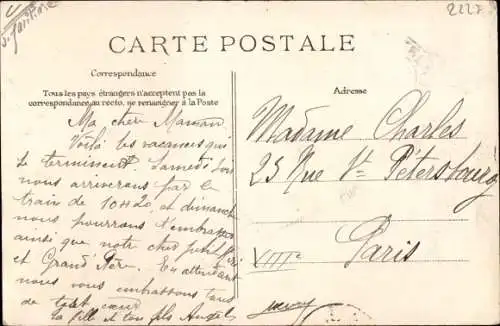 2227
CARTE POSTALE
Correspondance
Tous les pays étrangers n'acceptent pas la
correspondance au recto, se renseigner à la Poste
Adresse
Ma chère Maman
Voilà les vacances qui
se terminent. Samedi soir
nous arriverons par le
train de 10H20, et dimanche
nous pourrons t'embrasser
ainsi que notre cher petit
et Grand'Père. En attendant
nous vous embrassons tous
de tout cœur
ta fille et ton fils Angel
Madame Charles
23 Rue St Pétersbourg
Paris
VIIIe